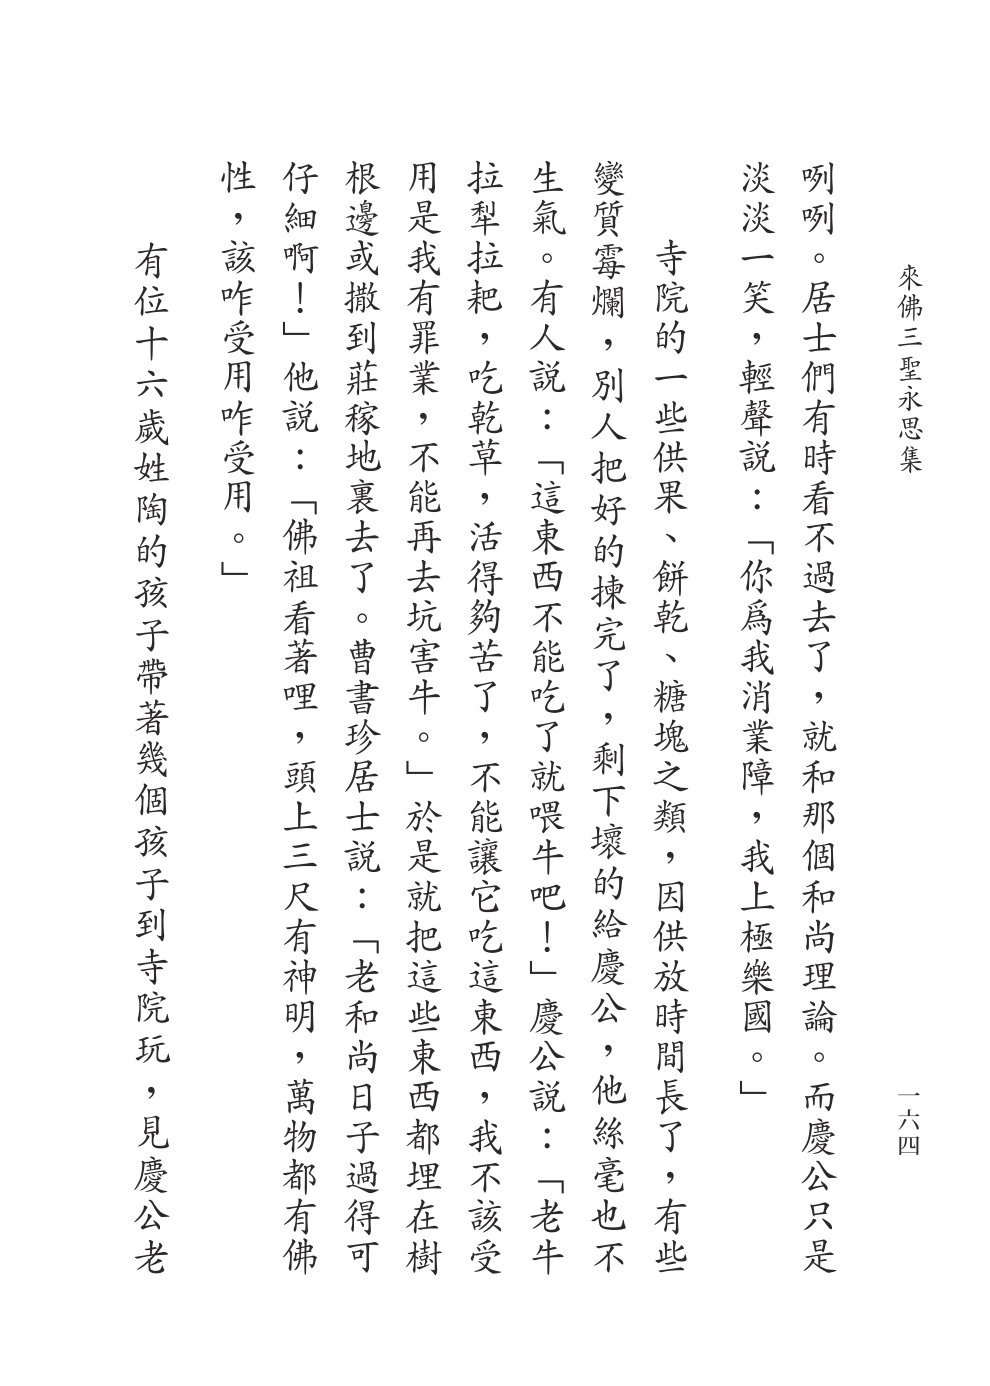 來佛三聖永思集
一六四
咧咧。居士們有時看不過去了，就和那個和尚理論。而慶公只是
淡淡一笑，輕聲説：「你爲我消業障，我上極樂國。」
寺院的一些供果、餅乾、糖塊之類，因供放時間長了，有些
變質霉爛，別人把好的揀完了，剩下壞的給慶公，他絲毫也不
生氣。有人説：「這東西不能吃了就喂牛吧！」慶公説：「老牛
拉犁拉耙，吃乾草，活得夠苦了，不能讓它吃這東西，我不該受
用是我有罪業，不能再去坑害牛。」於是就把這些東西都埋在樹
根邊或撒到莊稼地裏去了。曹書珍居士説：「老和尚日子過得可
仔細啊！」他説：「佛祖看著哩，頭上三尺有神明，萬物都有佛
性，該咋受用咋受用。」
有位十六歲姓陶的孩子帶著幾個孩子到寺院玩，見慶公老